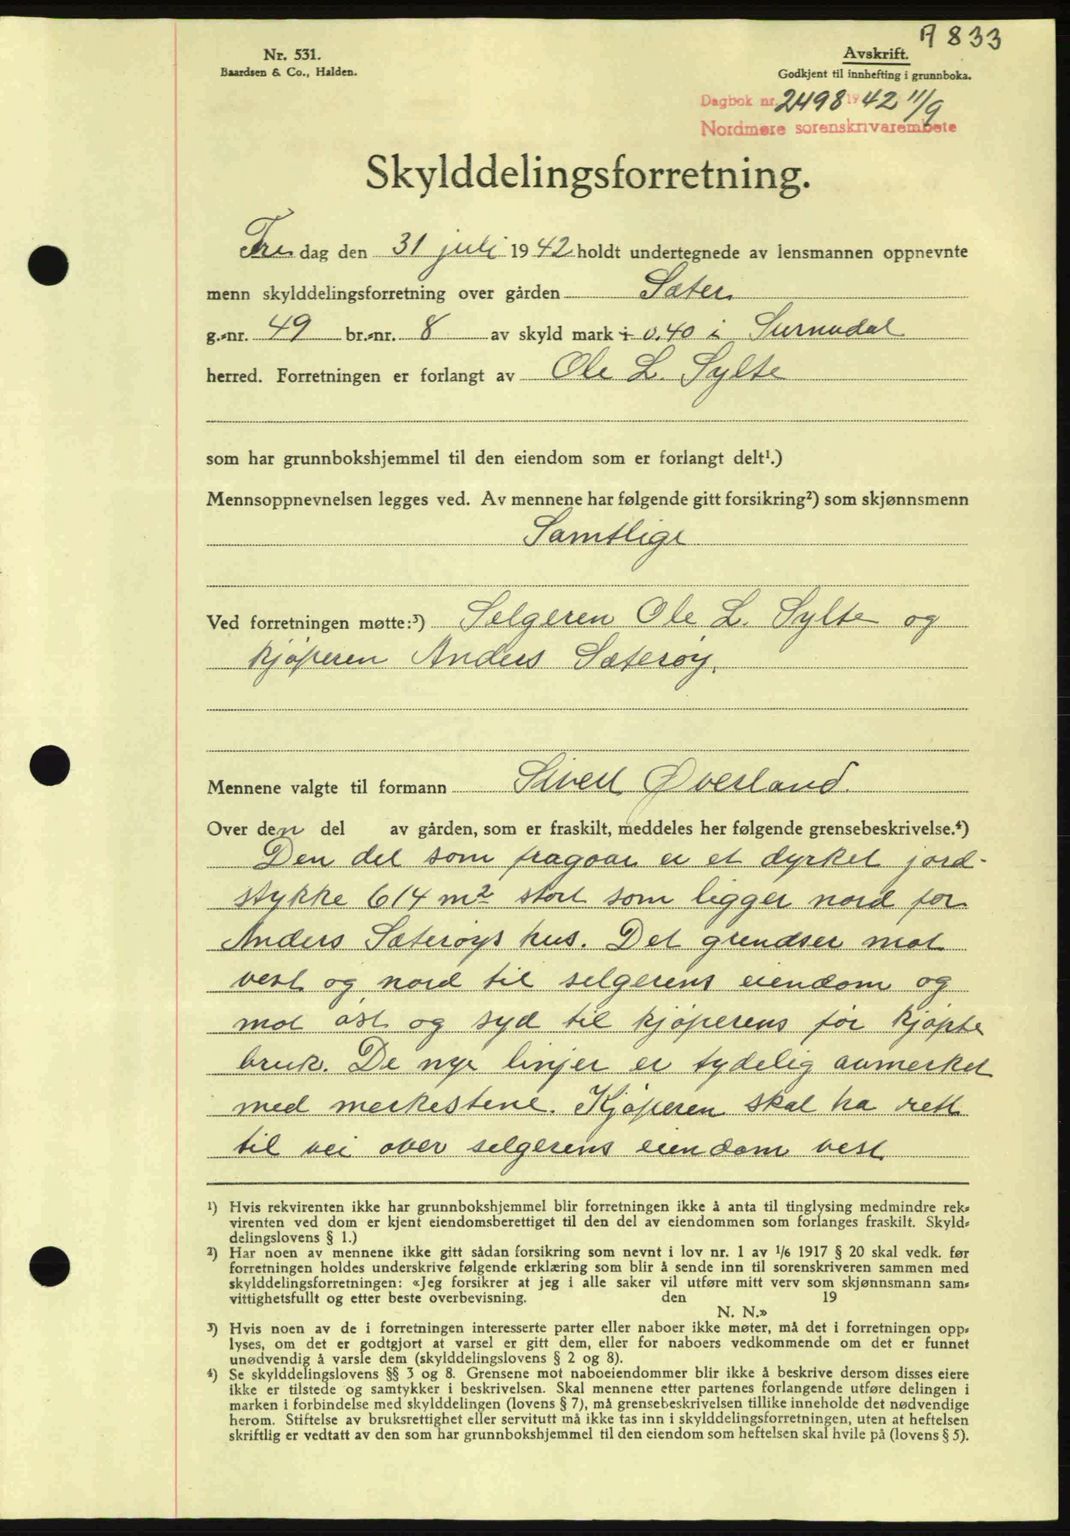 A 833
Nr. 531.
Baardsen & Co., Halden.
Avskrift.
Godkjent til innhefting i grunnboka.
Dagbok nr. 2498 1942 11/9
Nordmøre sorenskrivarembete
Skylddelingsforretning.
Fredag den 31 juli 1942 holdt undertegnede av lensmannen oppnevnte
menn skylddelingsforretning over gården Sæter
g.-nr. 49 br.-nr. 8 av skyld mark i 0.40 i Surnadal
herred. Forretningen er forlangt av Ole L. Sylte
som har grunnbokshjemmel til den eiendom som er forlangt delt¹.)
Mennsoppnevnelsen legges ved. Av mennene har følgende gitt forsikring²) som skjønnsmenn
Samtlige
Ved forretningen møtte:³) Selgeren Ole L. Sylte og
kjøperen Anders Sæterøy.
Mennene valgte til formann Sivert Øverland.
Over den del av gården, som er fraskilt, meddeles her følgende grensebeskrivelse.⁴)
Den del som fragaar er et dyrket jord-
stykke 614 m² stort som ligger nord for
Anders Sæterøys hus. Det grendser mot
vest og nord til selgerens eiendom og
mot øst og syd til kjøperens før kjøpte
bruk. De nye linjer er tydelig avmerket
med merkestene. Kjøperen skal ha rett
til vei over selgerens eiendom vest
¹) Hvis rekvirenten ikke har grunnbokshjemmel blir forretningen ikke å anta til tinglysing medmindre rek-
virenten ved dom er kjent eiendomsberettiget til den del av eiendommen som forlanges fraskilt. Skyld-
delingslovens § 1.)
²) Har noen av mennene ikke gitt sådan forsikring som nevnt i lov nr. 1 av 1/6 1917 § 20 skal vedk. før
forretningen holdes underskrive følgende erklæring som blir å sende inn til sorenskriveren sammen med
skylddelingsforretningen: «Jeg forsikrer at jeg i alle saker vil utføre mitt verv som skjønnsmann sam-
vittighetsfullt og etter beste overbevisning. den 19
N. N.»
³) Hvis noen av de i forretningen interesserte parter eller naboer ikke møter, må det i forretningen opp-
lyses, om det er godtgjort at varsel er gitt dem, eller for naboers vedkommende om det er funnet
unødvendig å varsle dem (skylddelingslovens § 2 og 8).
⁴) Se skylddelingslovens §§ 3 og 8. Grensene mot naboeiendommer blir ikke å beskrive dersom disses eiere
ikke er tilstede og samtykker i beskrivelsen. Skal mennene etter partenes forlangende utføre delingen i
marken i forbindelse med skylddelingen (lovens § 7), må grensebeskrivelsen tillike inneholde det nødvendige
herom. Stiftelse av bruksrettighet eller servitutt må ikke tas inn i skylddelingsforretningen, uten at heftelsen
skriftlig er vedtatt av den som har grunnbokshjemmel til den eiendom som heftelsen skal hvile på (lovens § 5).